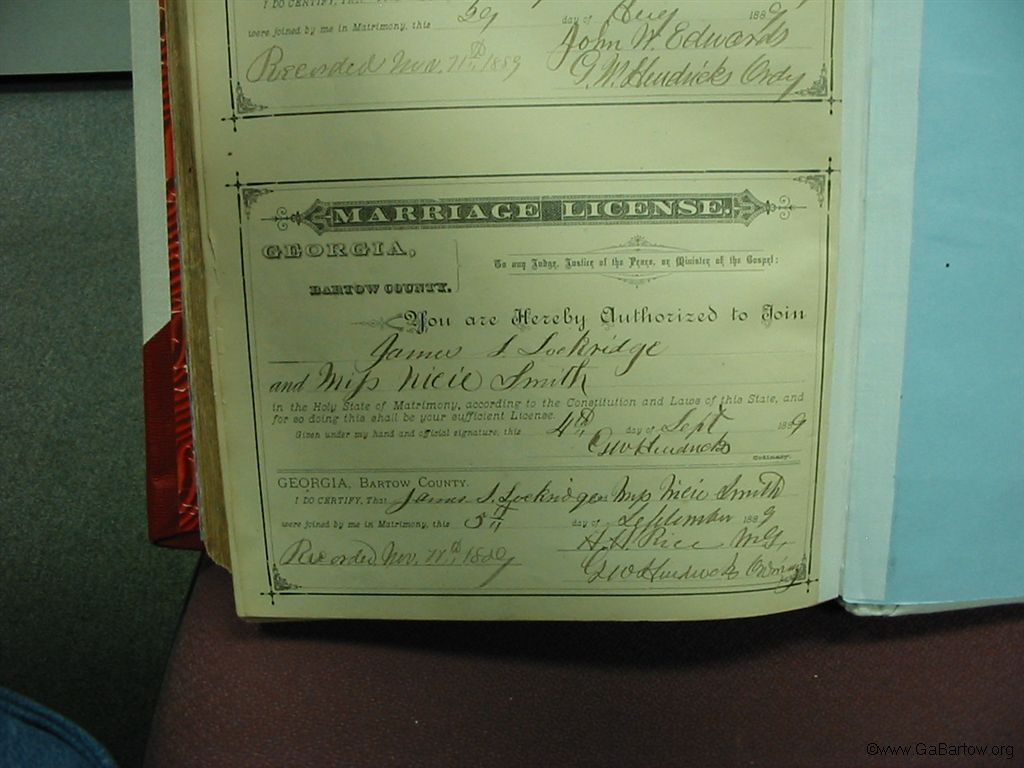 I DO CERTIFY, That
were joined by me in Matrimony, this 29 day of Aug 1889
John W. Edwards
Recorded Nov. 21st, 1889 G. W. Hendricks Ordy
MARRIAGE LICENSE.
GEORGIA,
BARTOW COUNTY.
To any Judge, Justice of the Peace, or Minister of the Gospel:
You are Hereby Authorized to Join
James S. Lockridge
and Miss Nicie Smith
in the Holy State of Matrimony, according to the Constitution and Laws of this State, and
for so doing this shall be your sufficient License.
Given under my hand and official signature, this 4th day of Sept 1889
GW Hendricks
Ordinary.
GEORGIA, Bartow County.
I DO CERTIFY, That James S. Lockridge & Miss Nicie Smith
were joined by me in Matrimony, this 5th day of September 1889
A. H. Rice M.G.
Recorded Nov. 1889 GW Hendricks Ordinary
©www.GaBartow.org